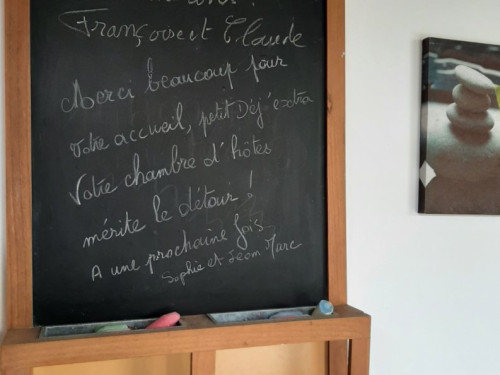 Françoise et Claude
Merci beaucoup pour
votre accueil, petit Déj' extra
Votre chambre d'hôtes
mérite le détour !
A une prochaine fois
Sophie et Jean Marc